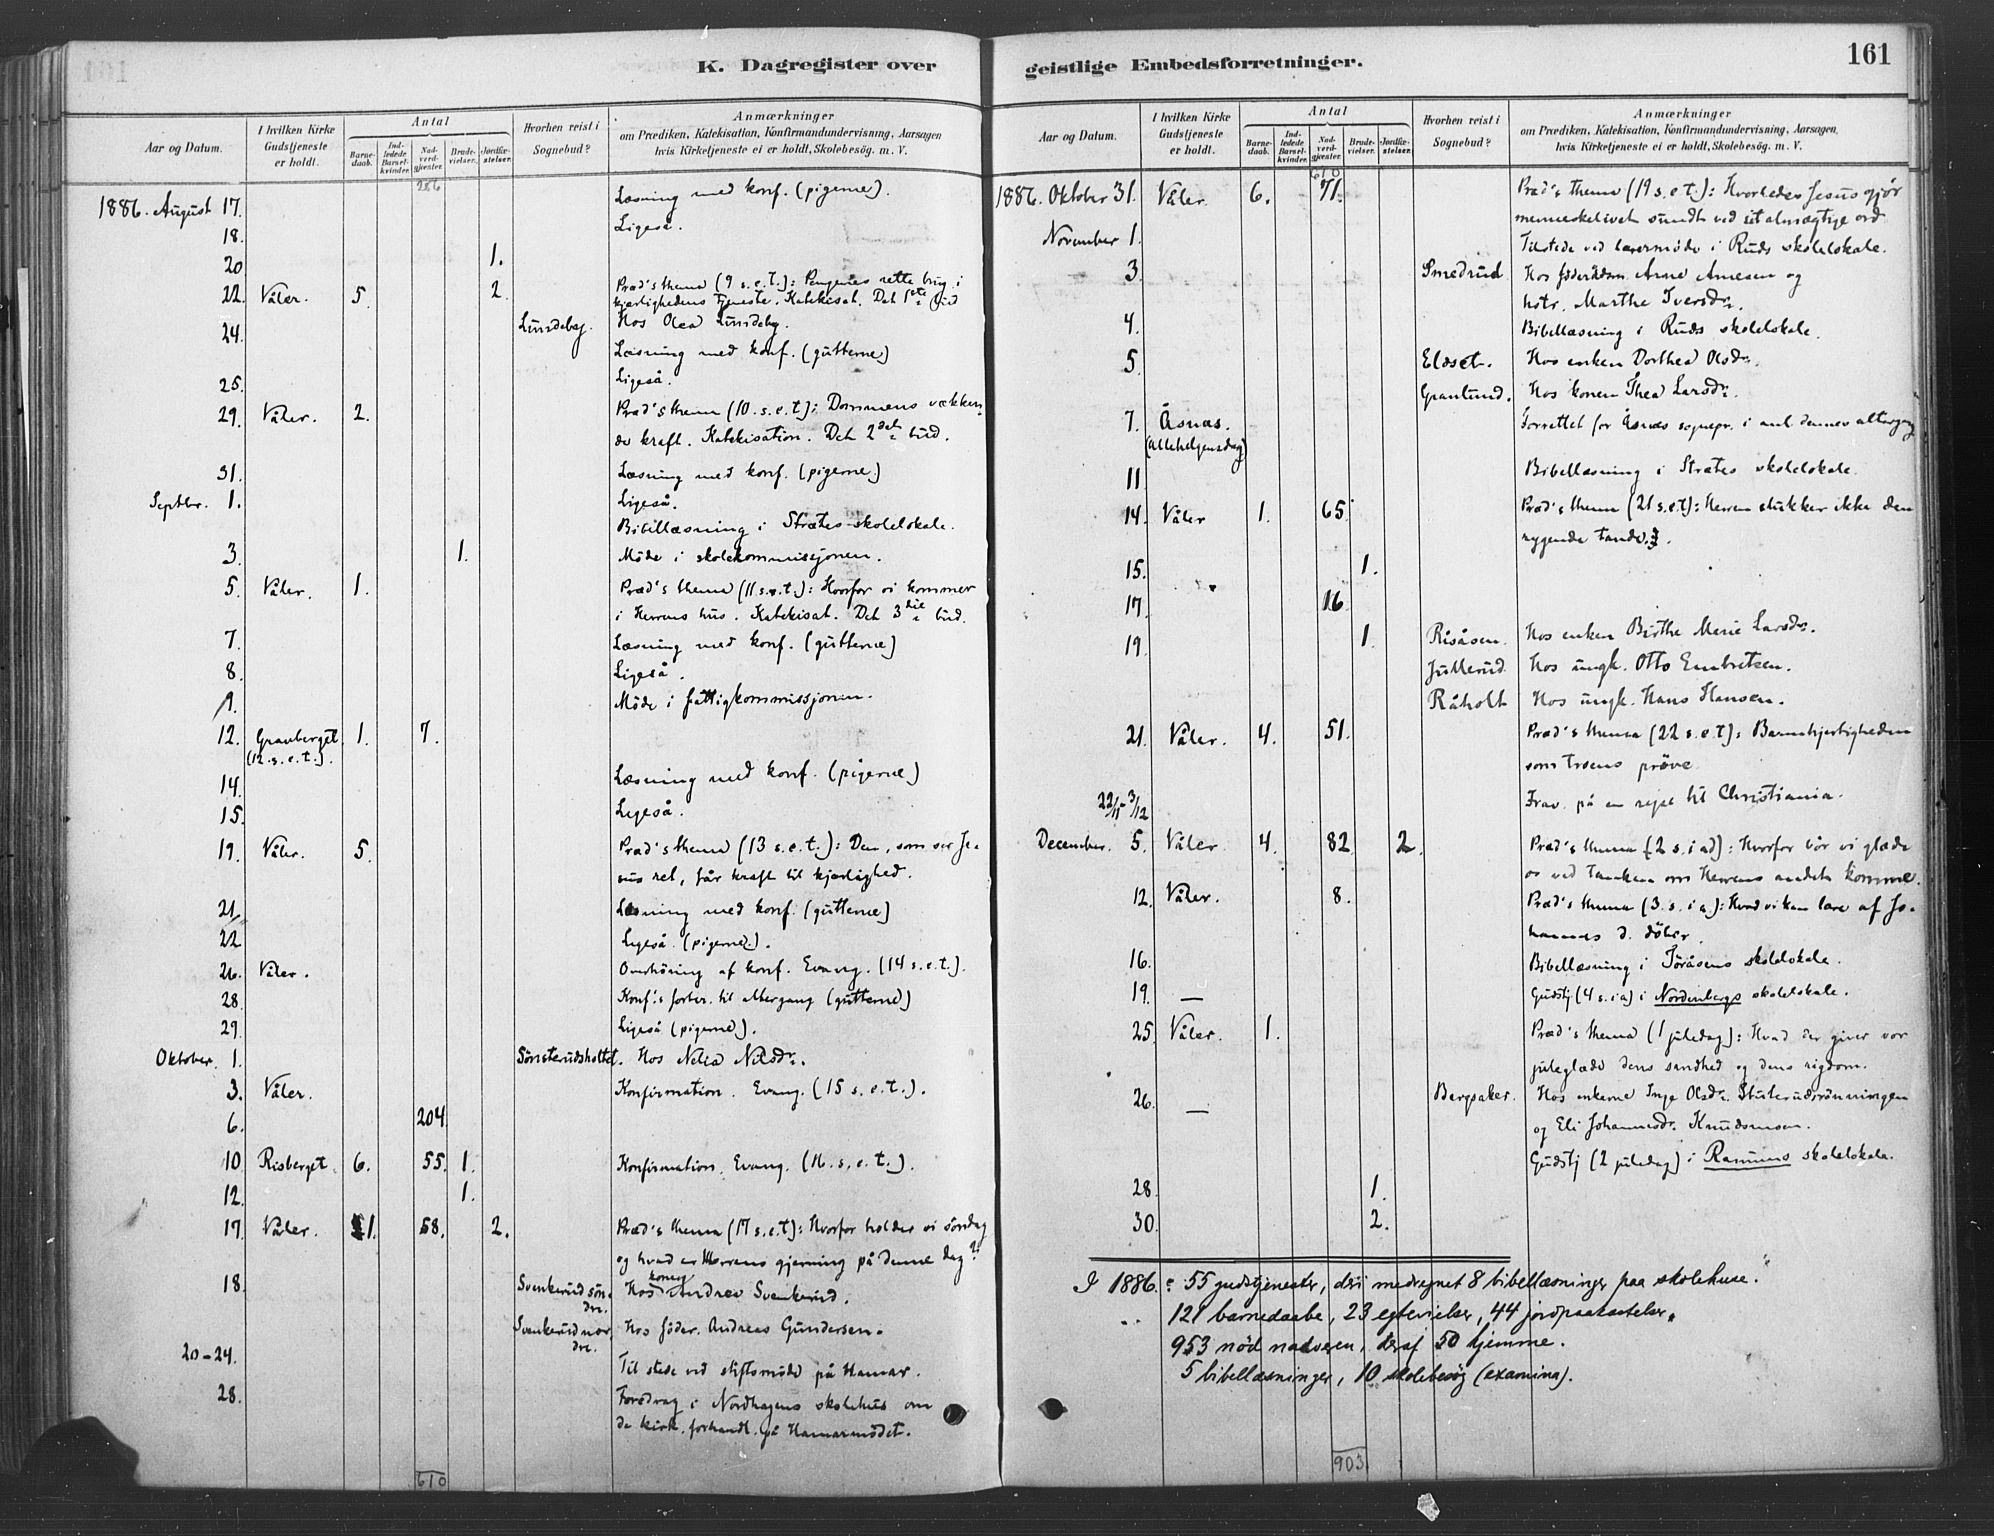 K. Dagregister over
Aar og Datum. I hvilken Kirke Gudstjeneste er holdt. Antal Barnedaab. Indledede Barselkvinder. Nadverdgjester. Brudevielser. Jordfæstelser. Hvorhen reist i Sognebud? Anmærkninger om Prædiken, Katekisation, Konfirmandundervisning, Aarsagen hvis Kirketjeneste ei er holdt, Skolebesøg. m. V.
286
1886. August 17. Læsning med konf. (pigerne).
18. Ligeså.
20 1.
22. Våler. 5. 2. Præd's thema (9 s.e.t.): Pengenes rette brug i
kjærlighedens tjeneste. Katekisat. Det 1ste bud
24. Lundeby. Hos Olea Lundeby.
Læsning med konf. (gutterne)
25. Ligeså.
29. Våler. 2. Præd's thema (10. s.e.t): Dommens vækken-
de kraft. Katekisation. Det 2det bud.
31. Læsning med konf. (pigerne)
Septbr. 1. Ligeså.
Bibellæsning i Strætes skolelokale.
3. 1. Møde i skolekommissjonen.
5. Våler. 1. Præd's thema (11 s.e.t.): Hvorfor vi kommer
i Herrens hus. Katekisat. Det 3die bud.
7. Læsning med konf. (gutterne)
8. Ligeså.
Møde i fattigkommissjonen.
12. Gravberget 1. 7.
(12. s.e.t.).
14. Læsning med konf. (pigerne)
15. Ligeså.
19. Våler. 5. Præd's thema (13 s.e.t.): Den, som ser Je-
sus ret, får kraft til kjærlighed.
21. Læsning med konf. (gutterne)
22 Ligeså. (pigerne).
26. Våler. Overhøring af konf. Evang. (14 s.e.t.).
28. Konf.'s forber. til altergang (gutterne)
29. Ligeså (pigerne).
Oktober. 1. Sønsterudsholtet. Hos Nelia Nilsdr.
3. Våler. Konfirmation. Evang. (15 s.e.t.).
6. 204
10 Risberget. 6. 55. 1. Konfirmation. Evang. (16. s.e.t.).
12. 1.
17. Våler. 1. 58. 2. Præd's thema (17 s.e.t): Hvorfor holder vi søndag
og hvad er Herrens gjerning på denne dag?
18. Svenkerud søn- Hos konen Andrea Svenkerud.
dre.
Svenkerud nor- Hos føder. Andreas Gundersen.
dre.
20-24. Til stede ved stiftsmøde på Hamar.
28. Foredrag i Nordhagens skolehus om
de kirk. forhandl. på Hamarmødet.
610
geistlige Embedsforretninger. 161
Aar og Datum. I hvilken Kirke Gudstjeneste er holdt. Antal Barnedaab. Indledede Barselkvinder. Nadverdgjester. Brudevielser. Jordfæstelser. Hvorhen reist i Sognebud? Anmærkninger om Prædiken, Katekisation, Konfirmandundervisning, Aarsagen, hvis Kirketjeneste ei er holdt, Skolebesøg. m. V.
610
1886. Oktober 31. Våler. 6. 71. Præd's thema (19 s.e.t.): Hvorledes Jesus gjør
menneskelivet sundt ved sit almægtige ord
November 1. Tilstede ved lærermøde i Ruds skolelokale.
3. Smedrud. Hos føderådsm. Arne Arnesen og
hstr. Marthe Iversdr.
4. Bibellæsning i Ruds skolelokale.
5. Eldset. Hos enken Dorthea Olsdr.
Granlund. Hos konen Thea Larsdr.
7. Åsnæs. Forrettet for Åsnæs sognepr. i anl. dennes altergang
(allehelgensdag)
11 Bibellæsning i Strætes skolelokale.
14. Våler 1. 65. Præd's thema (21 s.e.t): Herren slukker ikke den
rygende tande.
15. 1.
17. 16
19. 1. Risåsen. Hos enken Birthe Marie Larsdr.
Jullerud. Hos ungk. Otto Embretsen.
Råholt Hos ungk. Hans Hansen.
21. Våler. 4. 51. Præd's thema (22 s.e.t): Barmhjertigheden
som troens prøve.
22/11-3/12 Frav. på en rejse til Christiania.
December. 5. Våler. 4. 82 2. Præd's thema (2 s. i ad): Hvorfor bør vi glæde
os ved tanken om Herrens andet komme.
12. Våler. 8. Præd's thema (3. s. i a.): Hvad vi kan lære af Jo-
hannes d. døber.
16. Bibellæsning i Toråsens skolelokale.
19. — Gudstj (4 s. i a) i Nordenbergs skolelokale.
25. Våler. 1. Præd's thema (1 juledag): Hvad der giver vor
juleglæde dens sandhed og dens rigdom.
26. — Bergsaker. Hos enkerne Inge Olsdr. Stuterudsrønningen
og Eli Johannesdr. Knudsmoen.
Gudstj (2 juledag) i Ramuns skolelokale.
28. 1.
30. 2.
I 1886: 55 gudstjenester, deri medregnet 8 bibellæsninger paa skolehuse.
121 barnedaabe, 23 egtevielser, 44 jordpaakastelser.
953 nød nadveren, deraf 50 hjemme.
5 bibellæsninger, 10 skolebesøg (examina).
903.